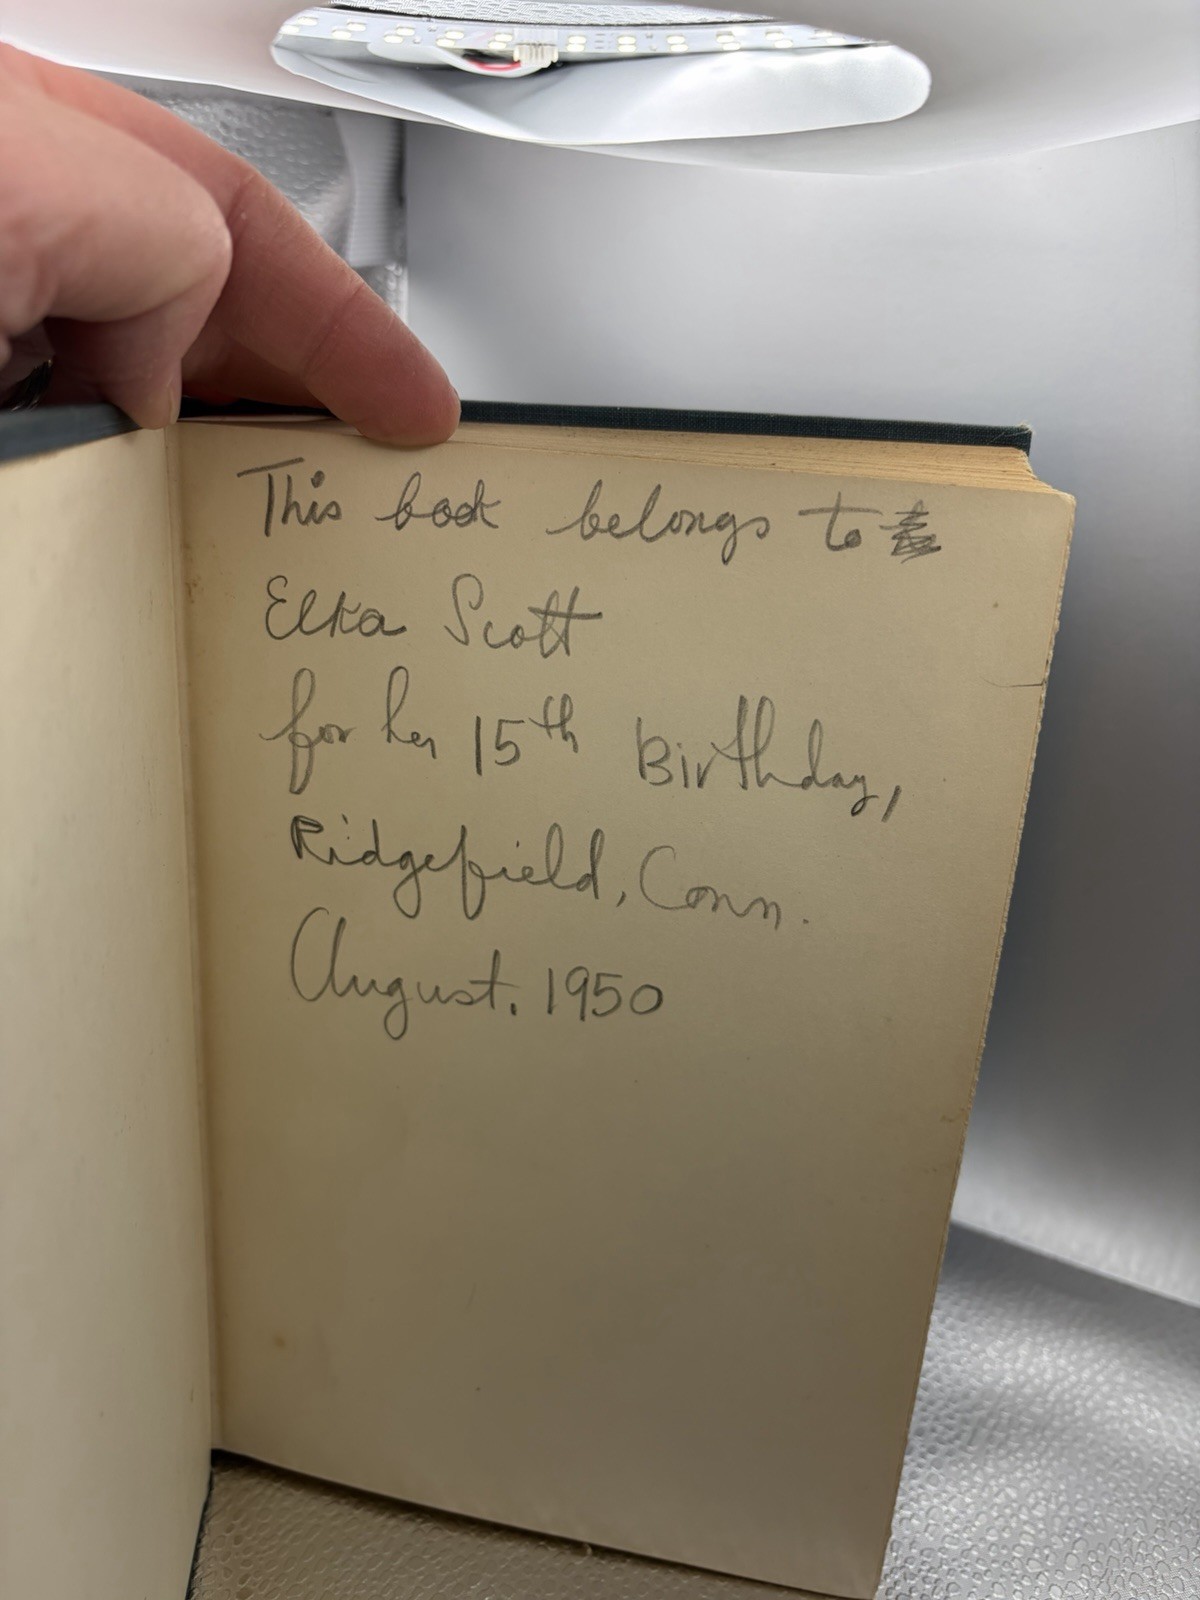 This book belongs to
Elka Scott
for her 15th Birthday,
Ridgefield, Conn.
August. 1950